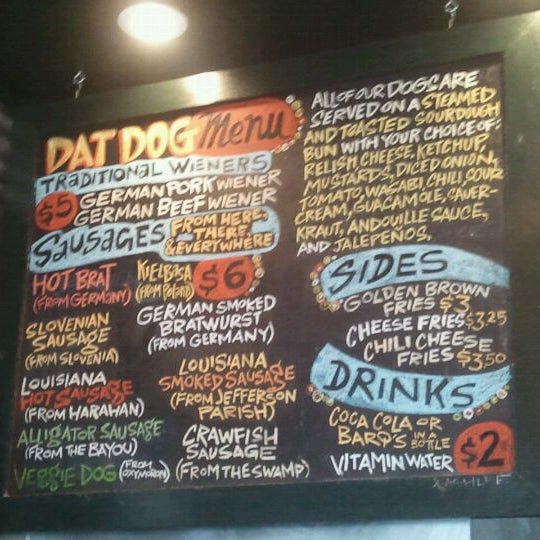 DAT DOG Menu
TRADITIONAL WIENERS
$5 GERMAN PORK WIENER
GERMAN BEEF WIENER
SAUSAGES FROM HERE,
THERE,
& EVERYWHERE
$6
HOT BRAT
(FROM GERMANY)
KIELBASA
(FROM POLAND)
SLOVENIAN
SAUSAGE
(FROM SLOVENIA)
GERMAN SMOKED
BRATWURST
(FROM GERMANY)
LOUISIANA
HOT SAUSAGE
(FROM HARAHAN)
LOUISIANA
SMOKED SAUSAGE
(FROM JEFFERSON
PARISH)
ALLIGATOR SAUSAGE
(FROM THE BAYOU)
CRAWFISH
SAUSAGE
(FROM THE SWAMP)
VEGGIE DOG (FROM
OXYMORON)
ALL OF OUR DOGS ARE
SERVED ON A STEAMED
AND TOASTED SOURDOUGH
BUN WITH YOUR CHOICE OF:
RELISH CHEESE, KETCHUP,
MUSTARDS, DICED ONION,
TOMATO, WASABI, CHILI, SOUR
CREAM, GUACAMOLE, SAUER-
KRAUT, ANDOUILLE SAUCE,
AND JALEPEÑOS.
SIDES
GOLDEN BROWN
FRIES $3
CHEESE FRIES $3.25
CHILI CHEESE
FRIES $3.50
DRINKS
COCA COLA OR
BARQ'S IN A
BOTTLE
VITAMIN WATER
$2